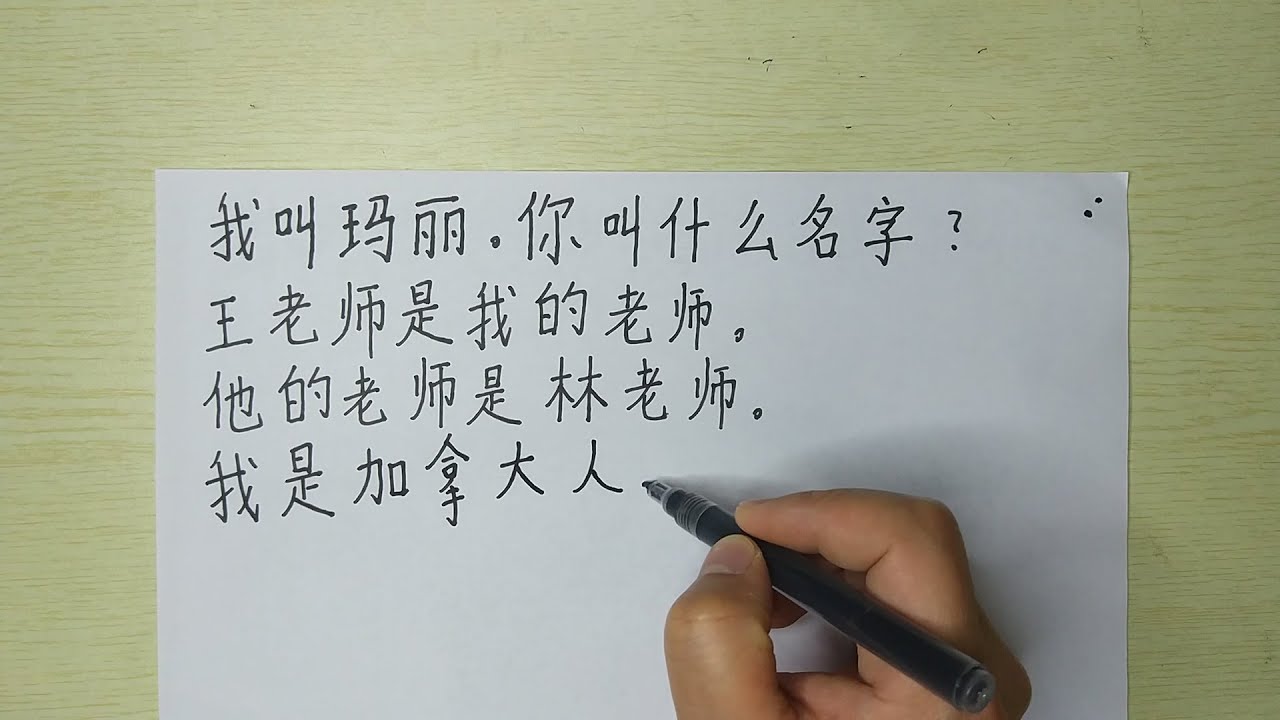 我叫玛丽。你叫什么名字?
王老师是我的老师。
他的老师是林老师。
我是加拿大人